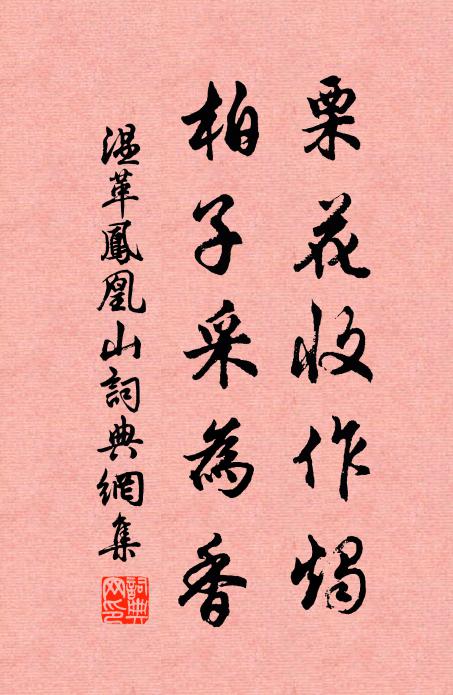 栗花收作燭
柏子采為香
溫革鳳凰山詞典網集
詞典網印